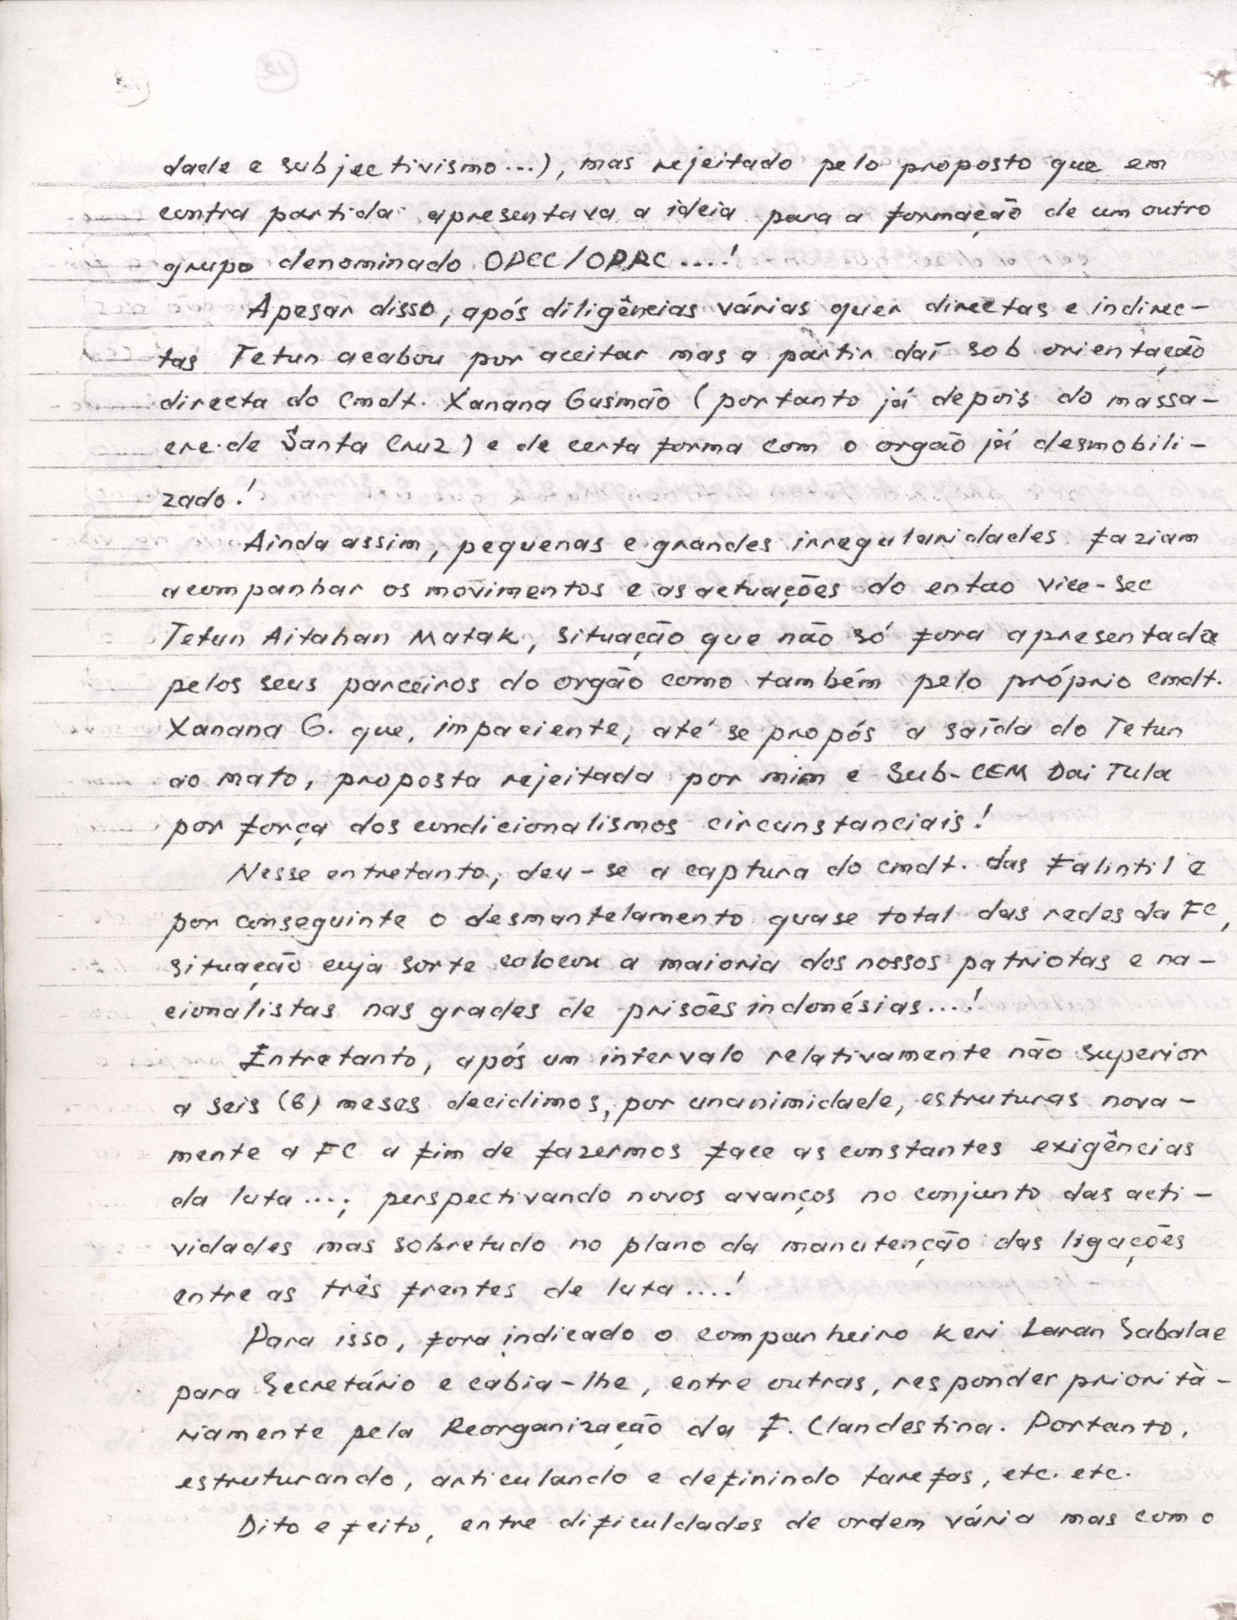 dade e subjectivismo...), mas rejeitado pelo proposto que em
contra partida apresentava a ideia para a formação de um outro
grupo denominado OPCC/OPRC....!
Apesar disso, após diligências várias quer directas e indirec-
tas Tetun acabou por aceitar mas a partir daí sob orientação
directa do Cmdt. Xanana Gusmão (portanto já depois do massa-
cre de Santa Cruz) e de certa forma com o orgão já desmobili-
zado!
Ainda assim, pequenas e grandes irregularidades faziam
acompanhar os movimentos e as actuações do entao vice-sec
Tetun Aitahan Matak, situação que não só fora apresentada
pelos seus parceiros do orgão como também pelo próprio cmdt.
Xanana G. que, impaciente, até se propôs a saída do Tetun
ao mato, proposta rejeitada por mim e Sub-CEM Dai Tula
por força dos condicionalismos circunstanciais!
Nesse entretanto, deu-se a captura do cmdt. das Falintil e
por conseguinte o desmantelamento quase total das redes da FC,
situação cuja sorte colocou a maioria dos nossos patriotas e na-
cionalistas nas grades de prisões indonésias...!
Entretanto, após um intervalo relativamente não superior
a seis (6) meses decidimos, por unanimidade, estruturas nova-
mente a FC a fim de fazermos face as constantes exigências
da luta ...; perspectivando novos avanços no conjunto das acti-
vidades mas sobretudo no plano da manutenção das ligações
entre as três frentes de luta....!
Para isso, fora indicado o companheiro Keri Laran Sabalae
para Secretário e cabia-lhe, entre outras, responder prioritá-
riamente pela Reorganização da F. Clandestina. Portanto,
estruturando, articulando e definindo tarefas, etc. etc.
Dito e feito, entre dificuldades de ordem vária mas com o